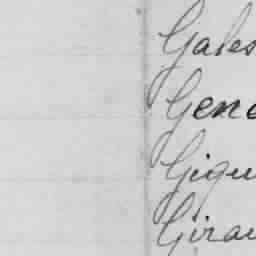 Gales
Gene
Gigu
Girau